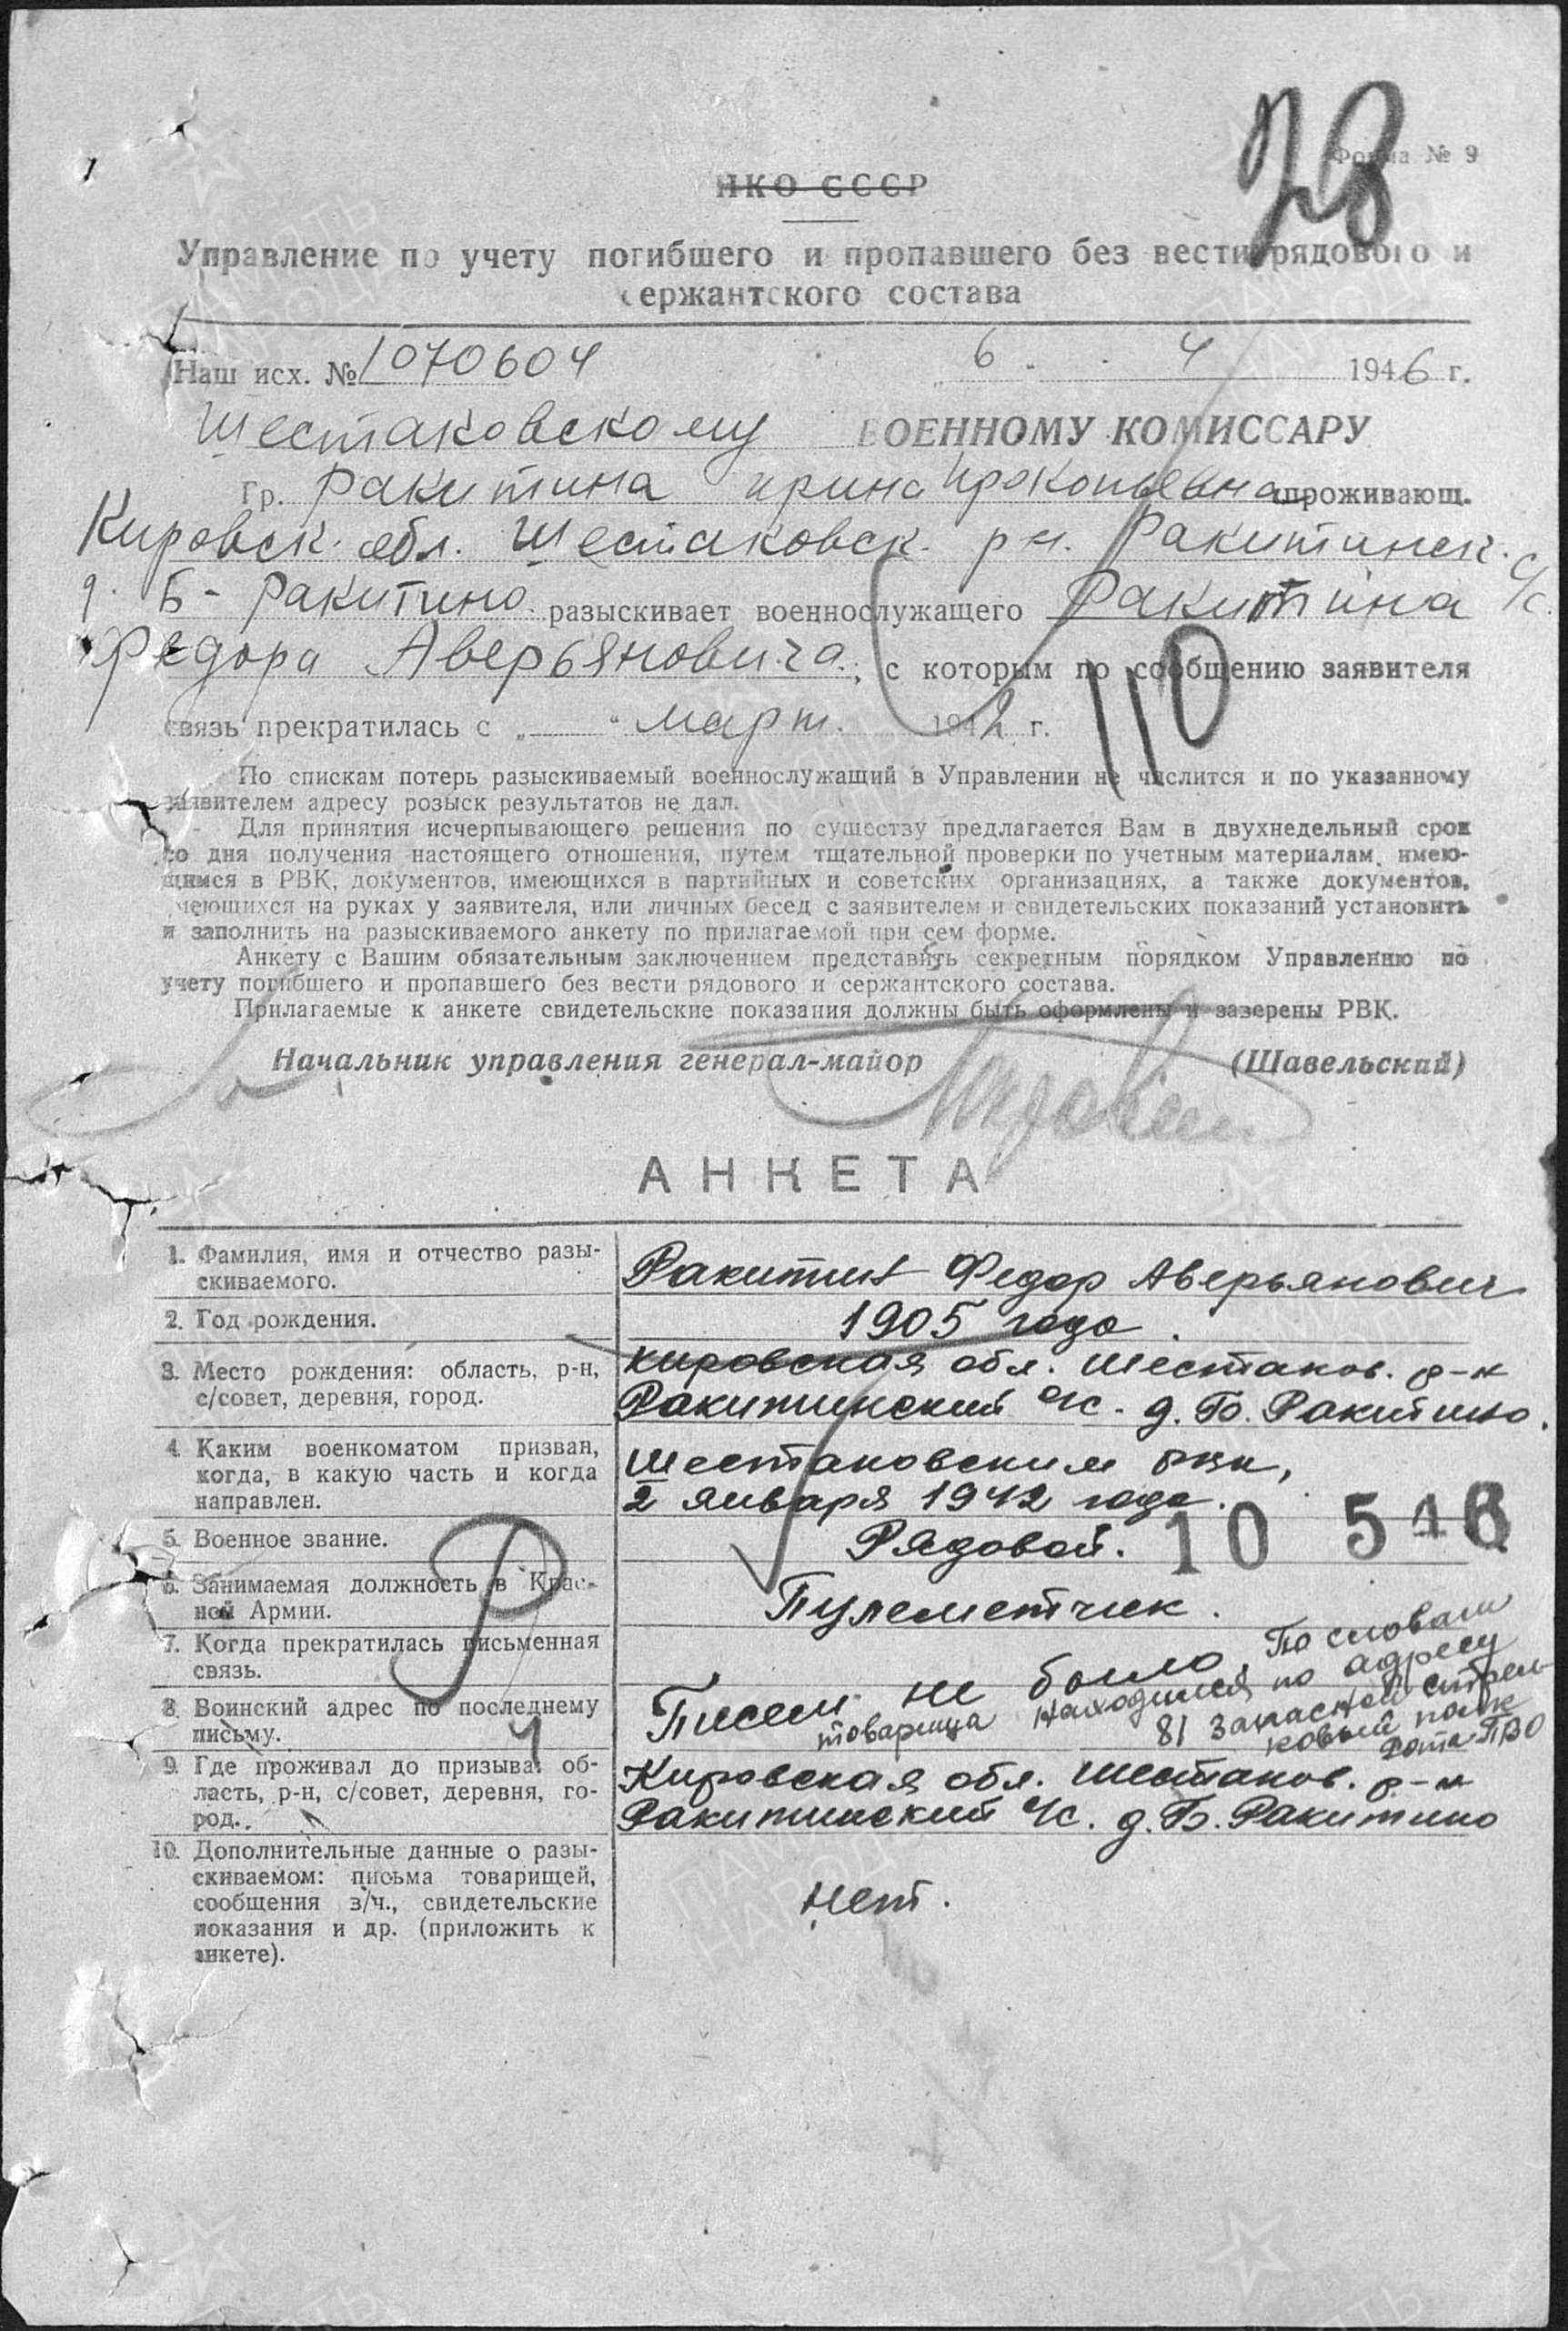 28
Форма № 9
НКО СССР
Управление по учету погибшего и пропавшего без вести рядового и
сержантского состава
Наш исх. № 1070604 6. 4 1946 г.
Шестаковскому ВОЕННОМУ КОМИССАРУ
Гр. Ракитина Ирина Прокопьевна проживающ.
Кировск. обл. Шестаковск. р-н. Ракитинск. с/с.
д. Б-Ракитино разыскивает военнослужащего Ракитина
Федора Аверьяновича, с которым по сообщению заявителя
связь прекратилась с „ “ март. 1942 г.
110
По спискам потерь разыскиваемый военнослужащий в Управлении не числится и по указанному
заявителем адресу розыск результатов не дал.
Для принятия исчерпывающего решения по существу предлагается Вам в двухнедельный срок
со дня получения настоящего отношения, путем тщательной проверки по учетным материалам, имею-
щимся в РВК, документов, имеющихся в партийных и советских организациях, а также документов,
имеющихся на руках у заявителя, или личных бесед с заявителем и свидетельских показаний установить
и заполнить на разыскиваемого анкету по прилагаемой при сем форме.
Анкету с Вашим обязательным заключением представить секретным порядком Управлению по
учету погибшего и пропавшего без вести рядового и сержантского состава.
Прилагаемые к анкете свидетельские показания должны быть оформлены и заверены РВК.
Начальник управления генерал-майор (Шавельский)
АНКЕТА
1. Фамилия, имя и отчество разы-
скиваемого.
Ракитин Федор Аверьянович
2. Год рождения.
1905 года.
3. Место рождения: область, р-н,
с/совет, деревня, город.
Кировская обл. Шестаков. р-н
Ракитинский с/с. д. Б. Ракитино.
4. Каким военкоматом призван,
когда, в какую часть и когда
направлен.
Шестаковским рвк,
2 января 1942 года.
5. Военное звание.
Рядовой.
10 516
6. Занимаемая должность в Крас-
ной Армии.
Пулеметчик.
7. Когда прекратилась письменная
связь.
8. Воинский адрес по последнему
письму.
Писем не было. По словам
товарища находился по адресу
81 Запасной стрел-
ковый полк
Рота ПВО
9. Где проживал до призыва: об-
ласть, р-н, с/совет, деревня, го-
род.
Кировская обл. Шестаков. р-н
Ракитинский с/с. д. Б. Ракитино
10. Дополнительные данные о разы-
скиваемом: письма товарищей,
сообщения з/ч., свидетельские
показания и др. (приложить к
анкете).
Нет.